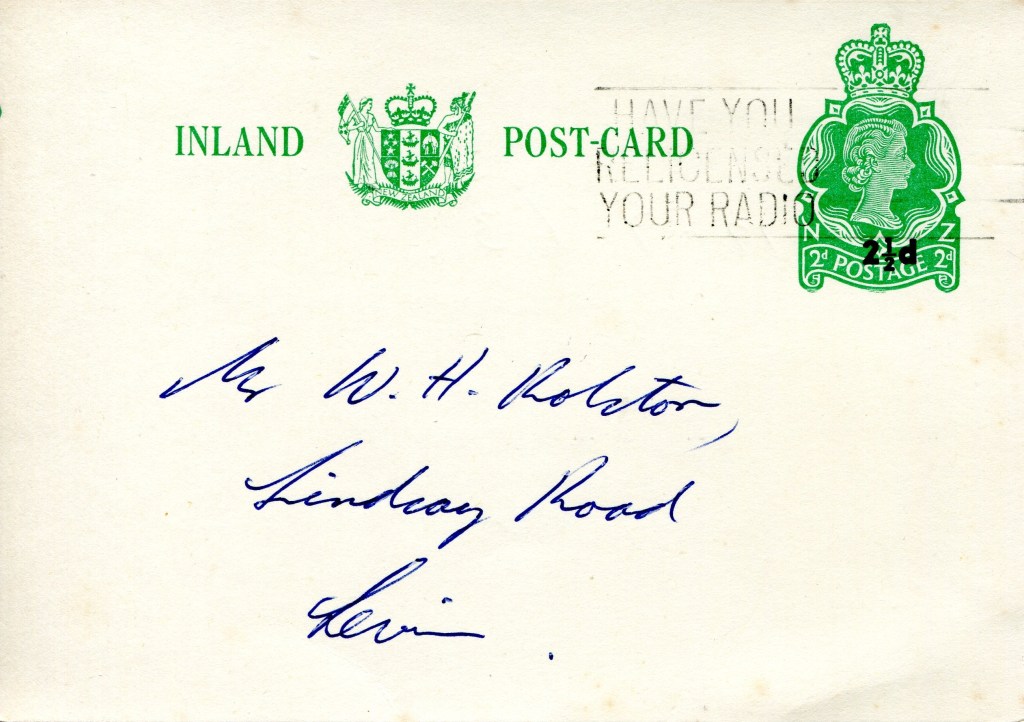 INLAND POST-CARD
NEW ZEALAND
HAVE YOU
RELICENSED
YOUR RADIO
N Z
2d POSTAGE 2d
2½d
Mr W. H. Rolston,
Lindsay Road
Levin